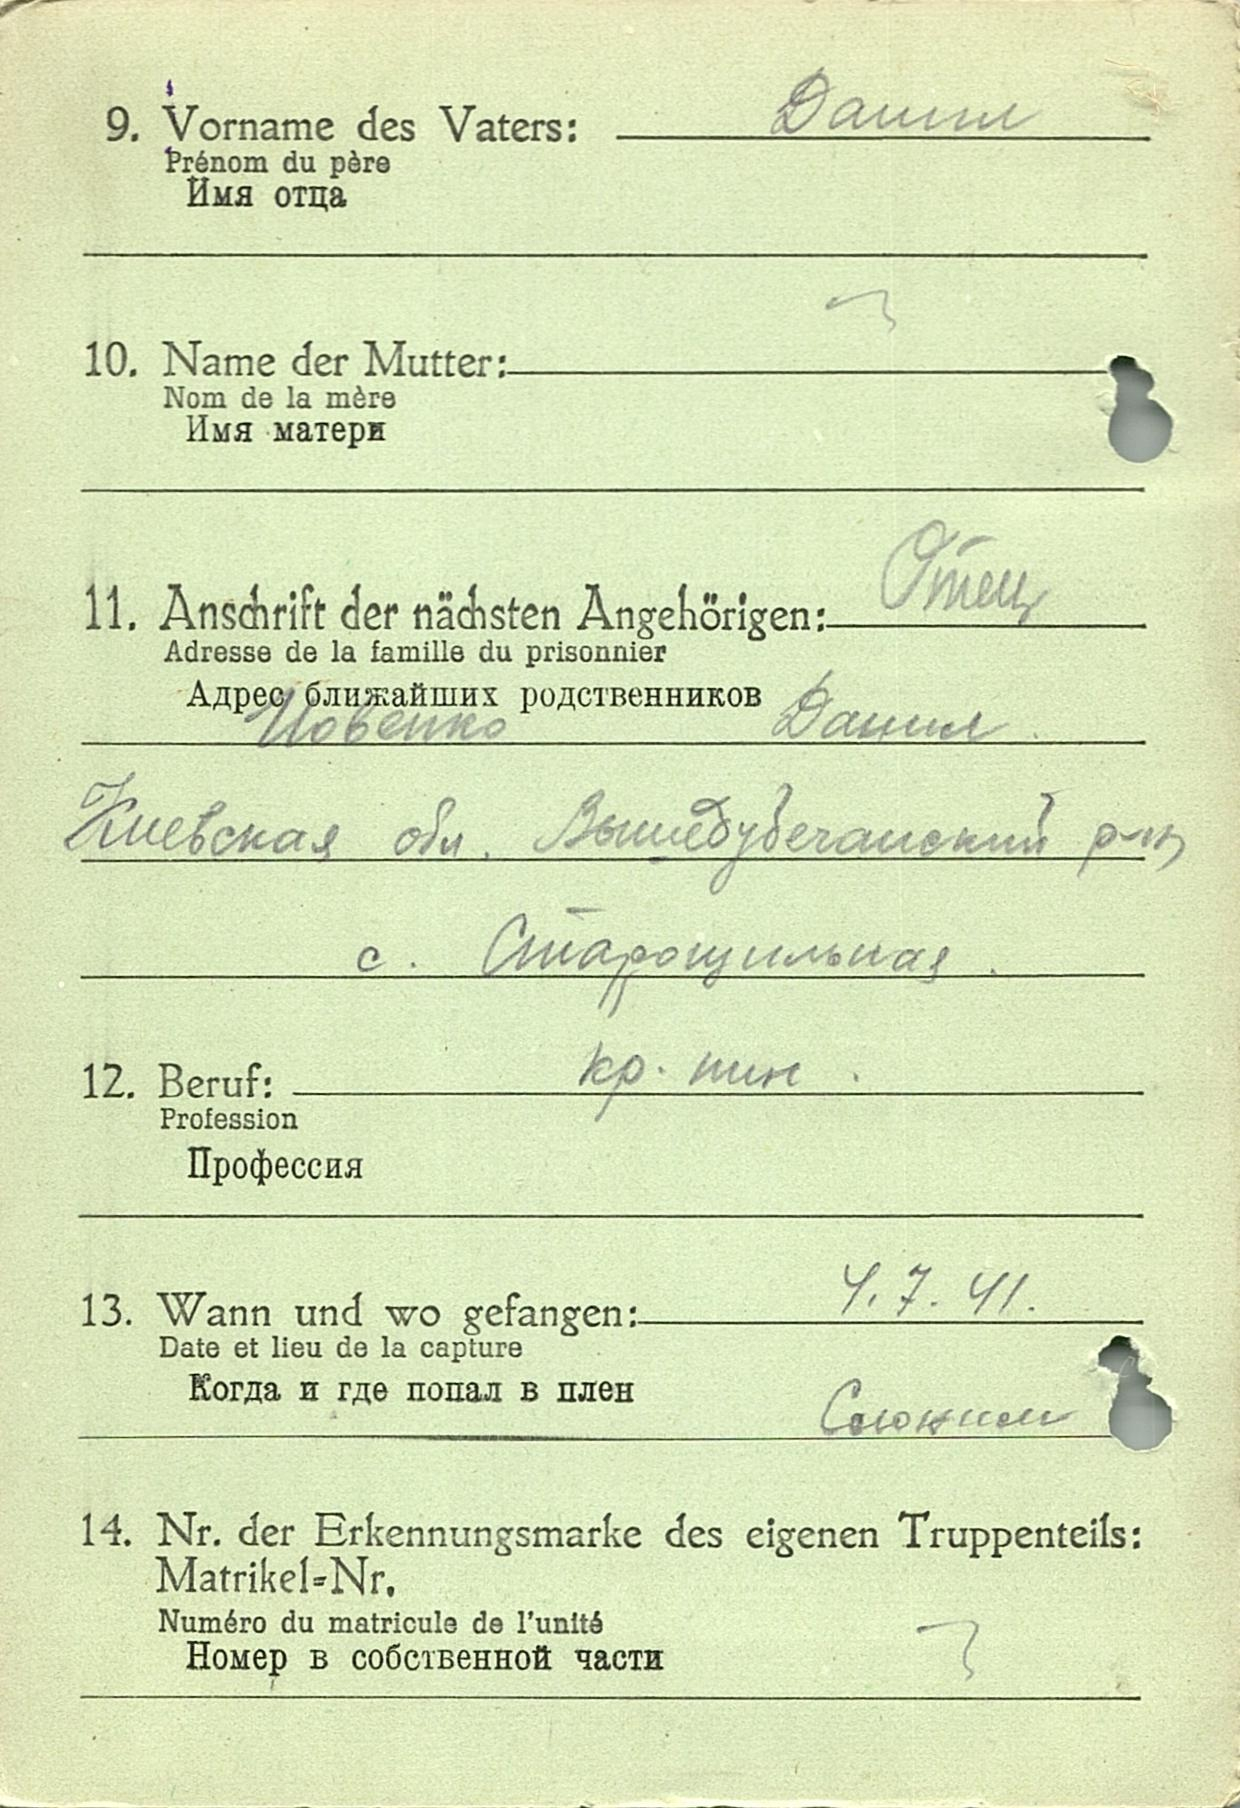 9. Vorname des Vaters: Данил
Prénom du père
Имя отца
10. Name der Mutter:
Nom de la mère
Имя матери
11. Anschrift der nächsten Angehörigen: Отец
Adresse de la famille du prisonnier
Адрес ближайших родственников
Иовенко Данил
Киевская обл. Вышедубечанский р-н
с. Старощильная.
12. Beruf: кр.
Profession
Профессия
13. Wann und wo gefangen: 4.7.41.
Date et lieu de la capture
Когда и где попал в плен
14. Nr. der Erkennungsmarke des eigenen Truppenteils:
Matrikel=Nr.
Numéro du matricule de l'unité
Номер в собственной части